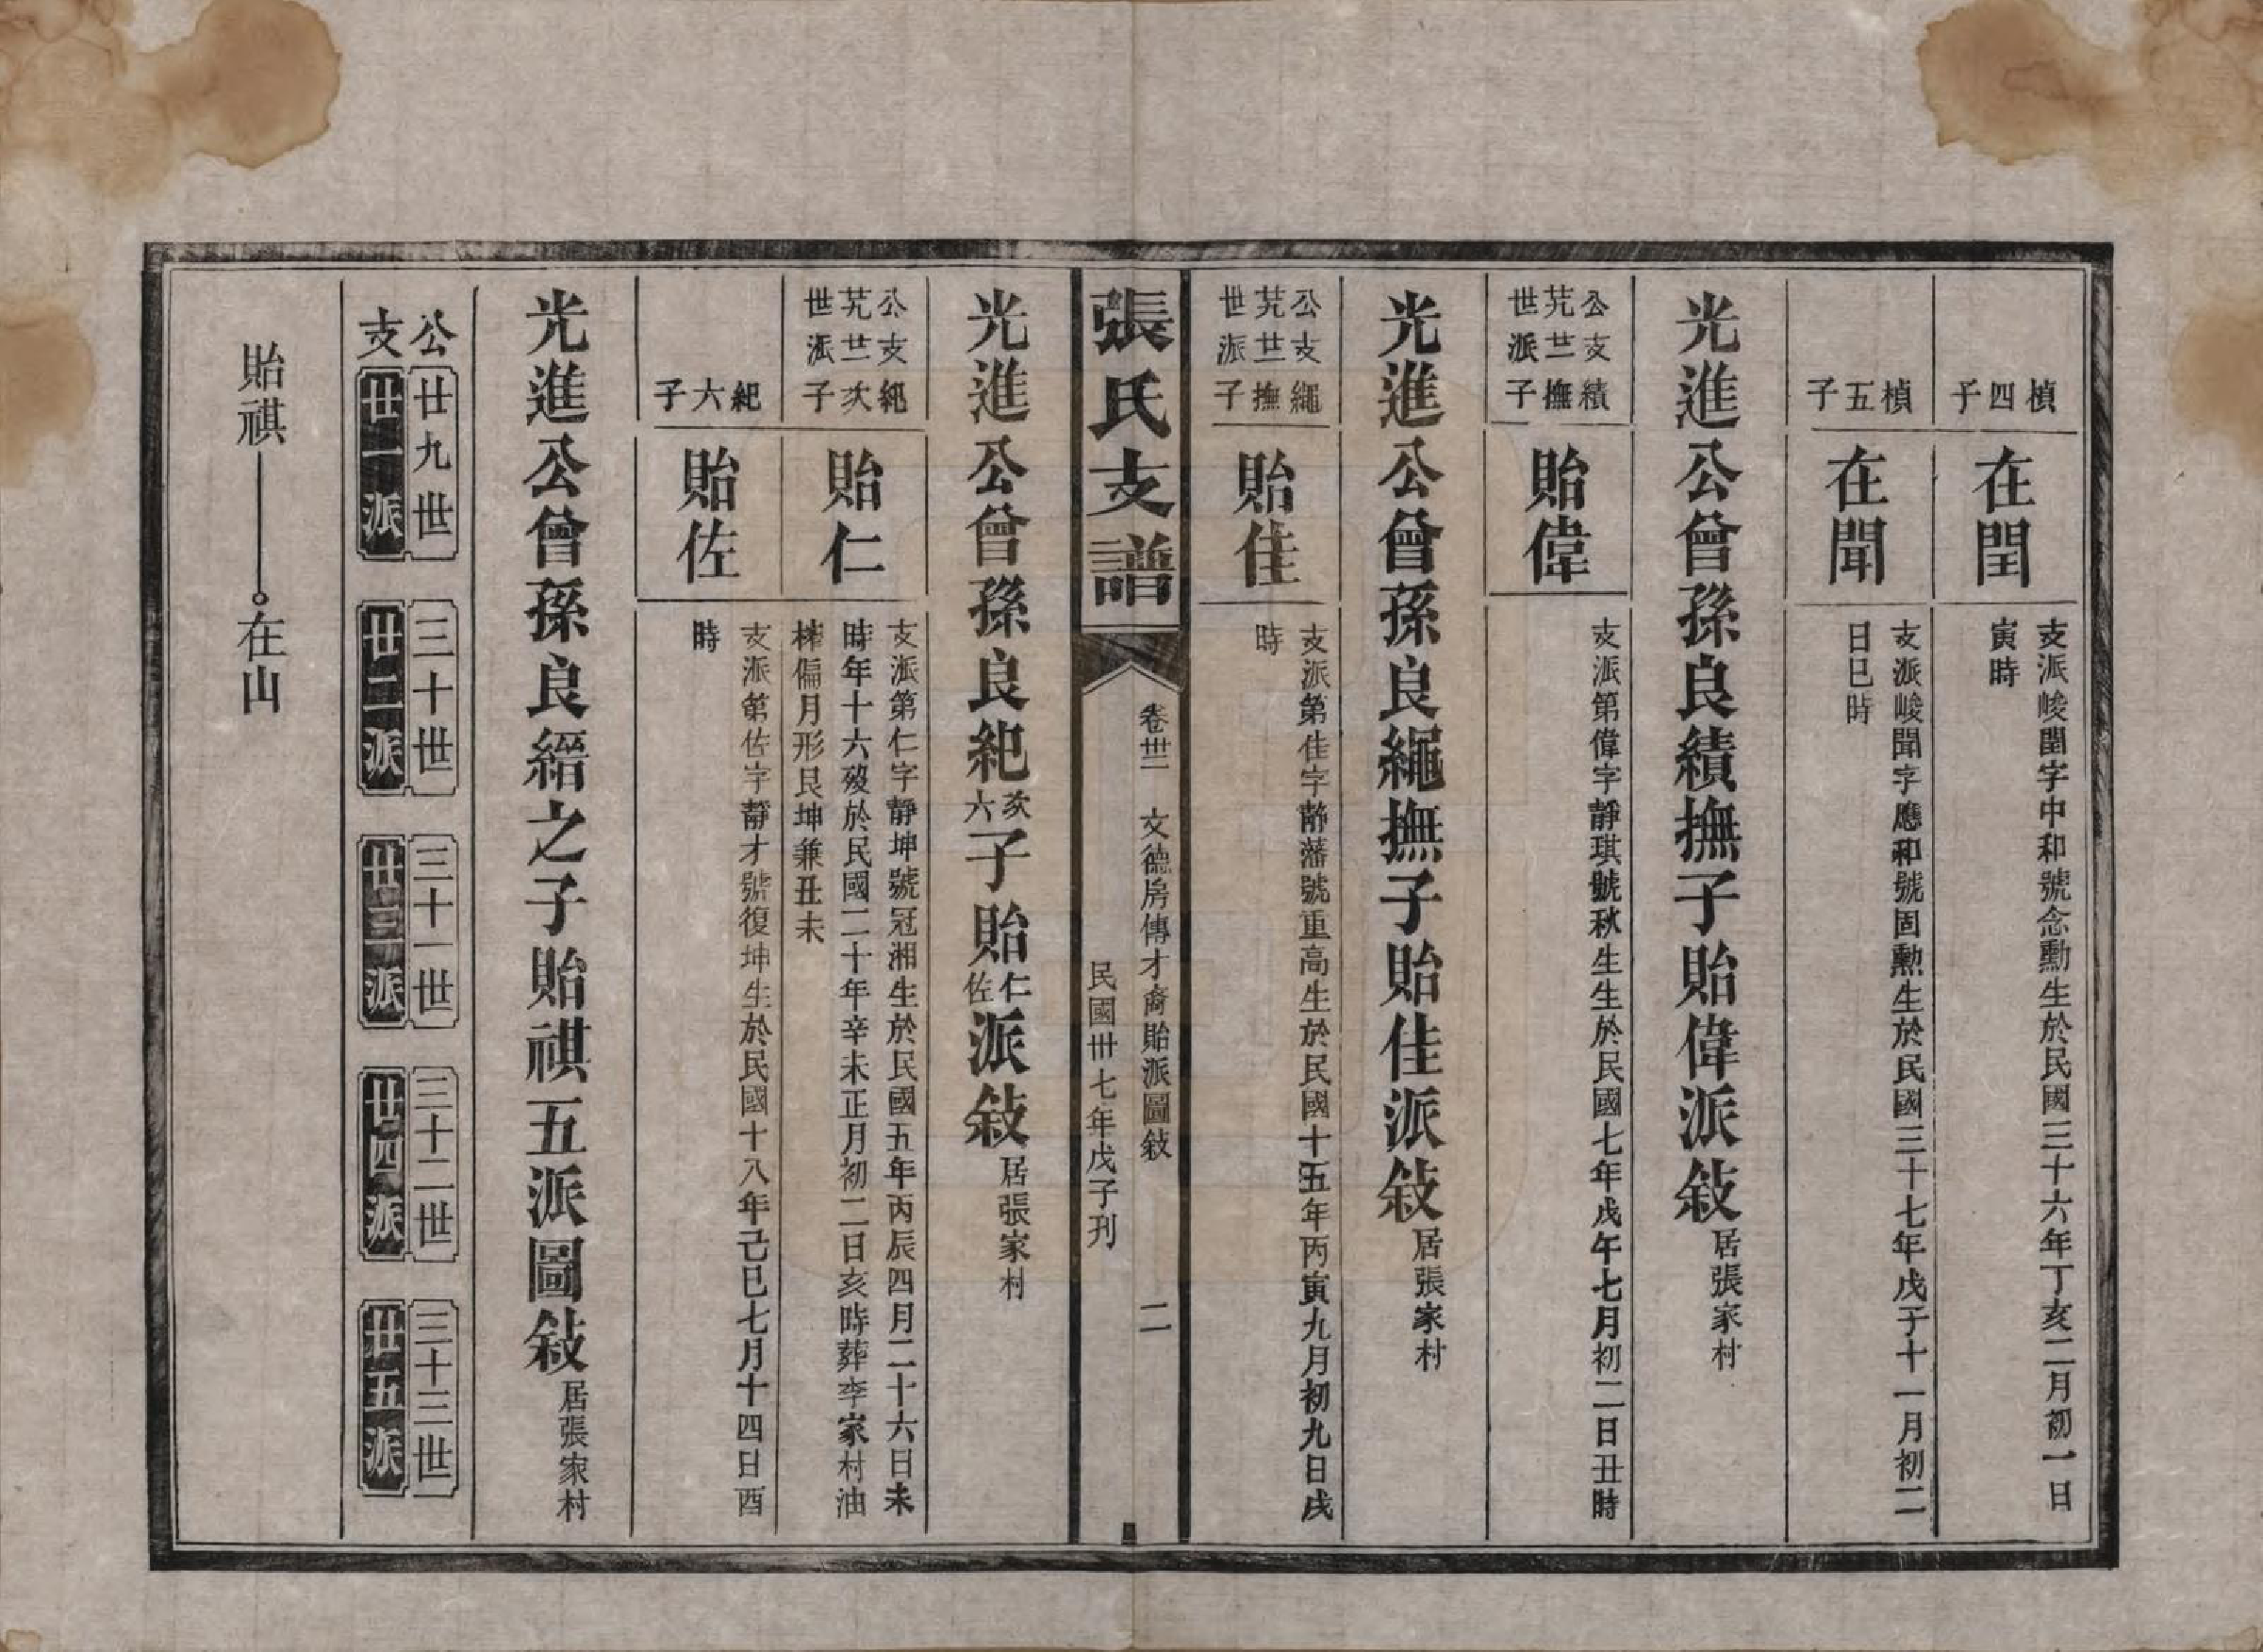 楨四子
在閏
支派峻閏字中和號念勳生於民國三十六年丁亥二月初一日
寅時
楨五子
在聞
支派峻聞字應和號固勲生於民國三十七年戊子十一月初二
日巳時
光進公曾孫良績撫子貽偉派敍居張家村
公支績
艽廿撫
世派子
貽偉
支派第偉字靜琪號秋生生於民國七年戊午七月初二日丑時
光進公曾孫良繩撫子貽佳派敍居張家村
公支繩
艽廿撫
世派子
貽佳
支派第佳字靜藩號重高生於民國十五年丙寅九月初九日戌
時
張氏支譜
卷卅二 文德房傳才裔貽派圖敍 二
民國卅七年戊子刊
光進公曾孫良紀次六子貽仁佐派敍居張家村
公支紀
艽廿次
世派子
貽仁
支派第仁字靜坤號冠湘生於民國五年丙辰四月二十六日未
時年十六歿於民國二十年辛未正月初二日亥時葬李家村油
榨偏月形艮坤兼丑未
紀六子
貽佐
支派第佐字靜才號復坤生於民國十八年己巳七月十四日酉
時
光進公曾孫良縉之子貽祺五派圖敍居張家村
公 廿九世 三十世 三十一世 三十二世 三十三世
支 廿一派 廿二派 廿三派 廿四派 廿五派
貽祺 在山